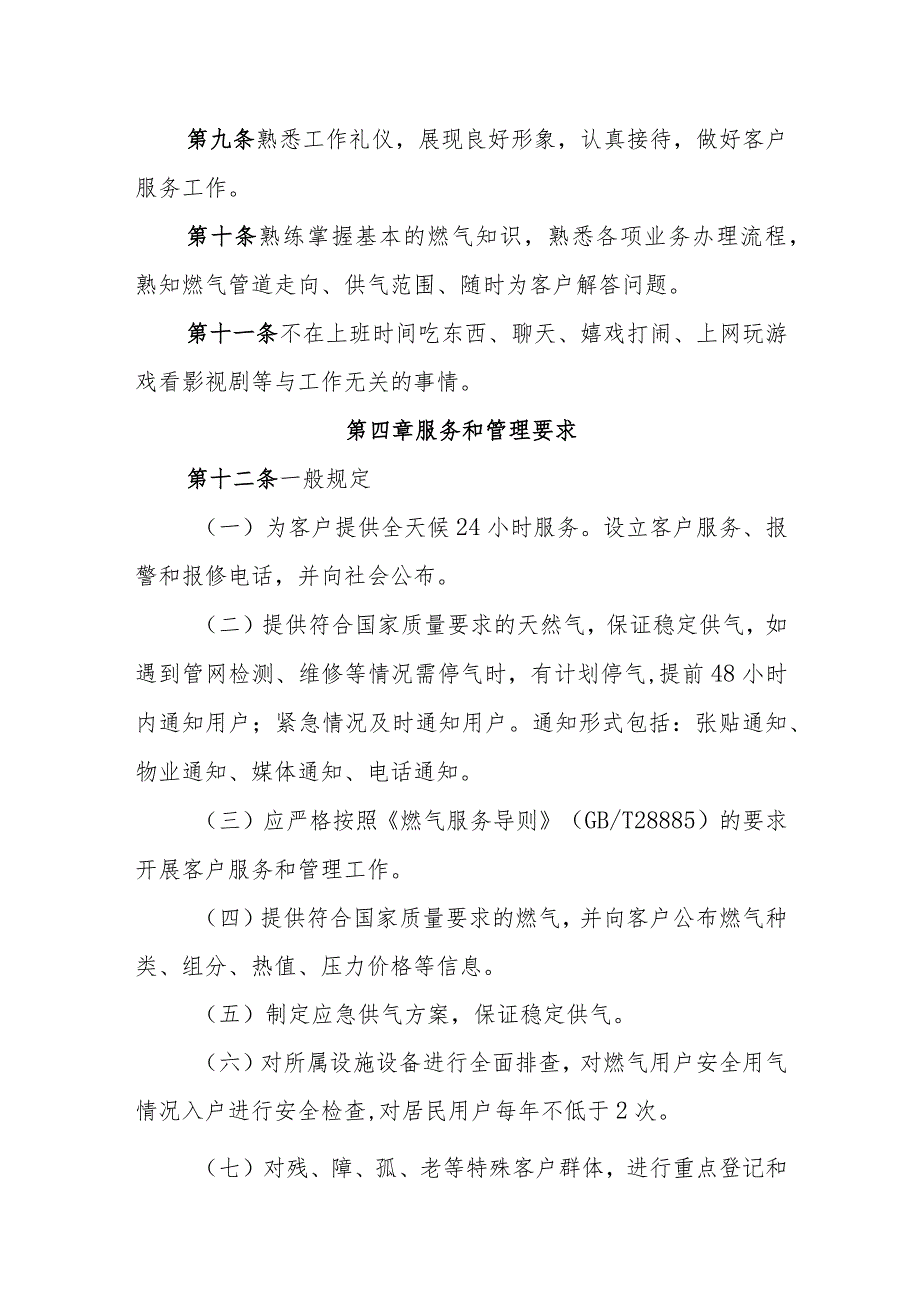 第九条熟悉工作礼仪，展现良好形象，认真接待，做好客户
服务工作。
第十条熟练掌握基本的燃气知识，熟悉各项业务办理流程，
熟知燃气管道走向、供气范围、随时为客户解答问题。
第十一条不在上班时间吃东西、聊天、嬉戏打闹、上网玩游
戏看影视剧等与工作无关的事情。
第四章服务和管理要求
第十二条一般规定
（一）为客户提供全天候 24 小时服务。设立客户服务、报
警和报修电话，并向社会公布。
（二）提供符合国家质量要求的天然气，保证稳定供气，如
遇到管网检测、维修等情况需停气时，有计划停气,提前 48 小时
内通知用户；紧急情况及时通知用户。通知形式包括：张贴通知、
物业通知、媒体通知、电话通知。
（三）应严格按照《燃气服务导则》（GB/T28885）的要求
开展客户服务和管理工作。
（四）提供符合国家质量要求的燃气，并向客户公布燃气种
类、组分、热值、压力价格等信息。
（五）制定应急供气方案，保证稳定供气。
（六）对所属设施设备进行全面排查，对燃气用户安全用气
情况入户进行安全检查,对居民用户每年不低于 2 次。
（七）对残、障、孤、老等特殊客户群体，进行重点登记和